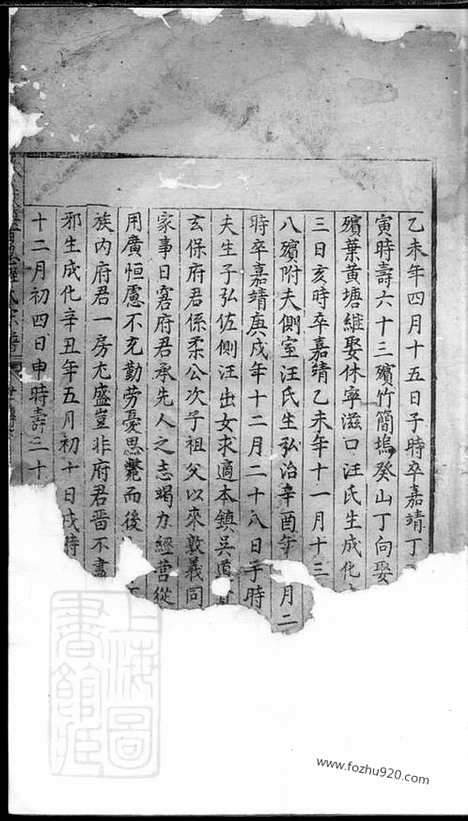 乙未年四月十五日子時卒嘉靖丁
寅時壽六十三殯竹簡塢癸山丁向娶
殯葉黃塘繼娶休寧滋口汪氏生成化
三日亥時卒嘉靖乙未年十一月十三
八殯附夫側室汪氏生弘治辛酉年 月二
時卒嘉靖庚戌年十二月二十八日子時
夫生子弘佐側汪出女求適本鎮吳
玄保府君係柔公次子祖父以來敦義同
家事日窘府君承先人之志竭力經營從
用廣恒慮不充勤勞憂思斃而後
族內府君一房尤盛豈非府君晋不
邪生成化辛丑年五月初十日戌時
十二月初四日申時壽三十
氏宗譜
上海圖書館藏
www.fozhu920.com